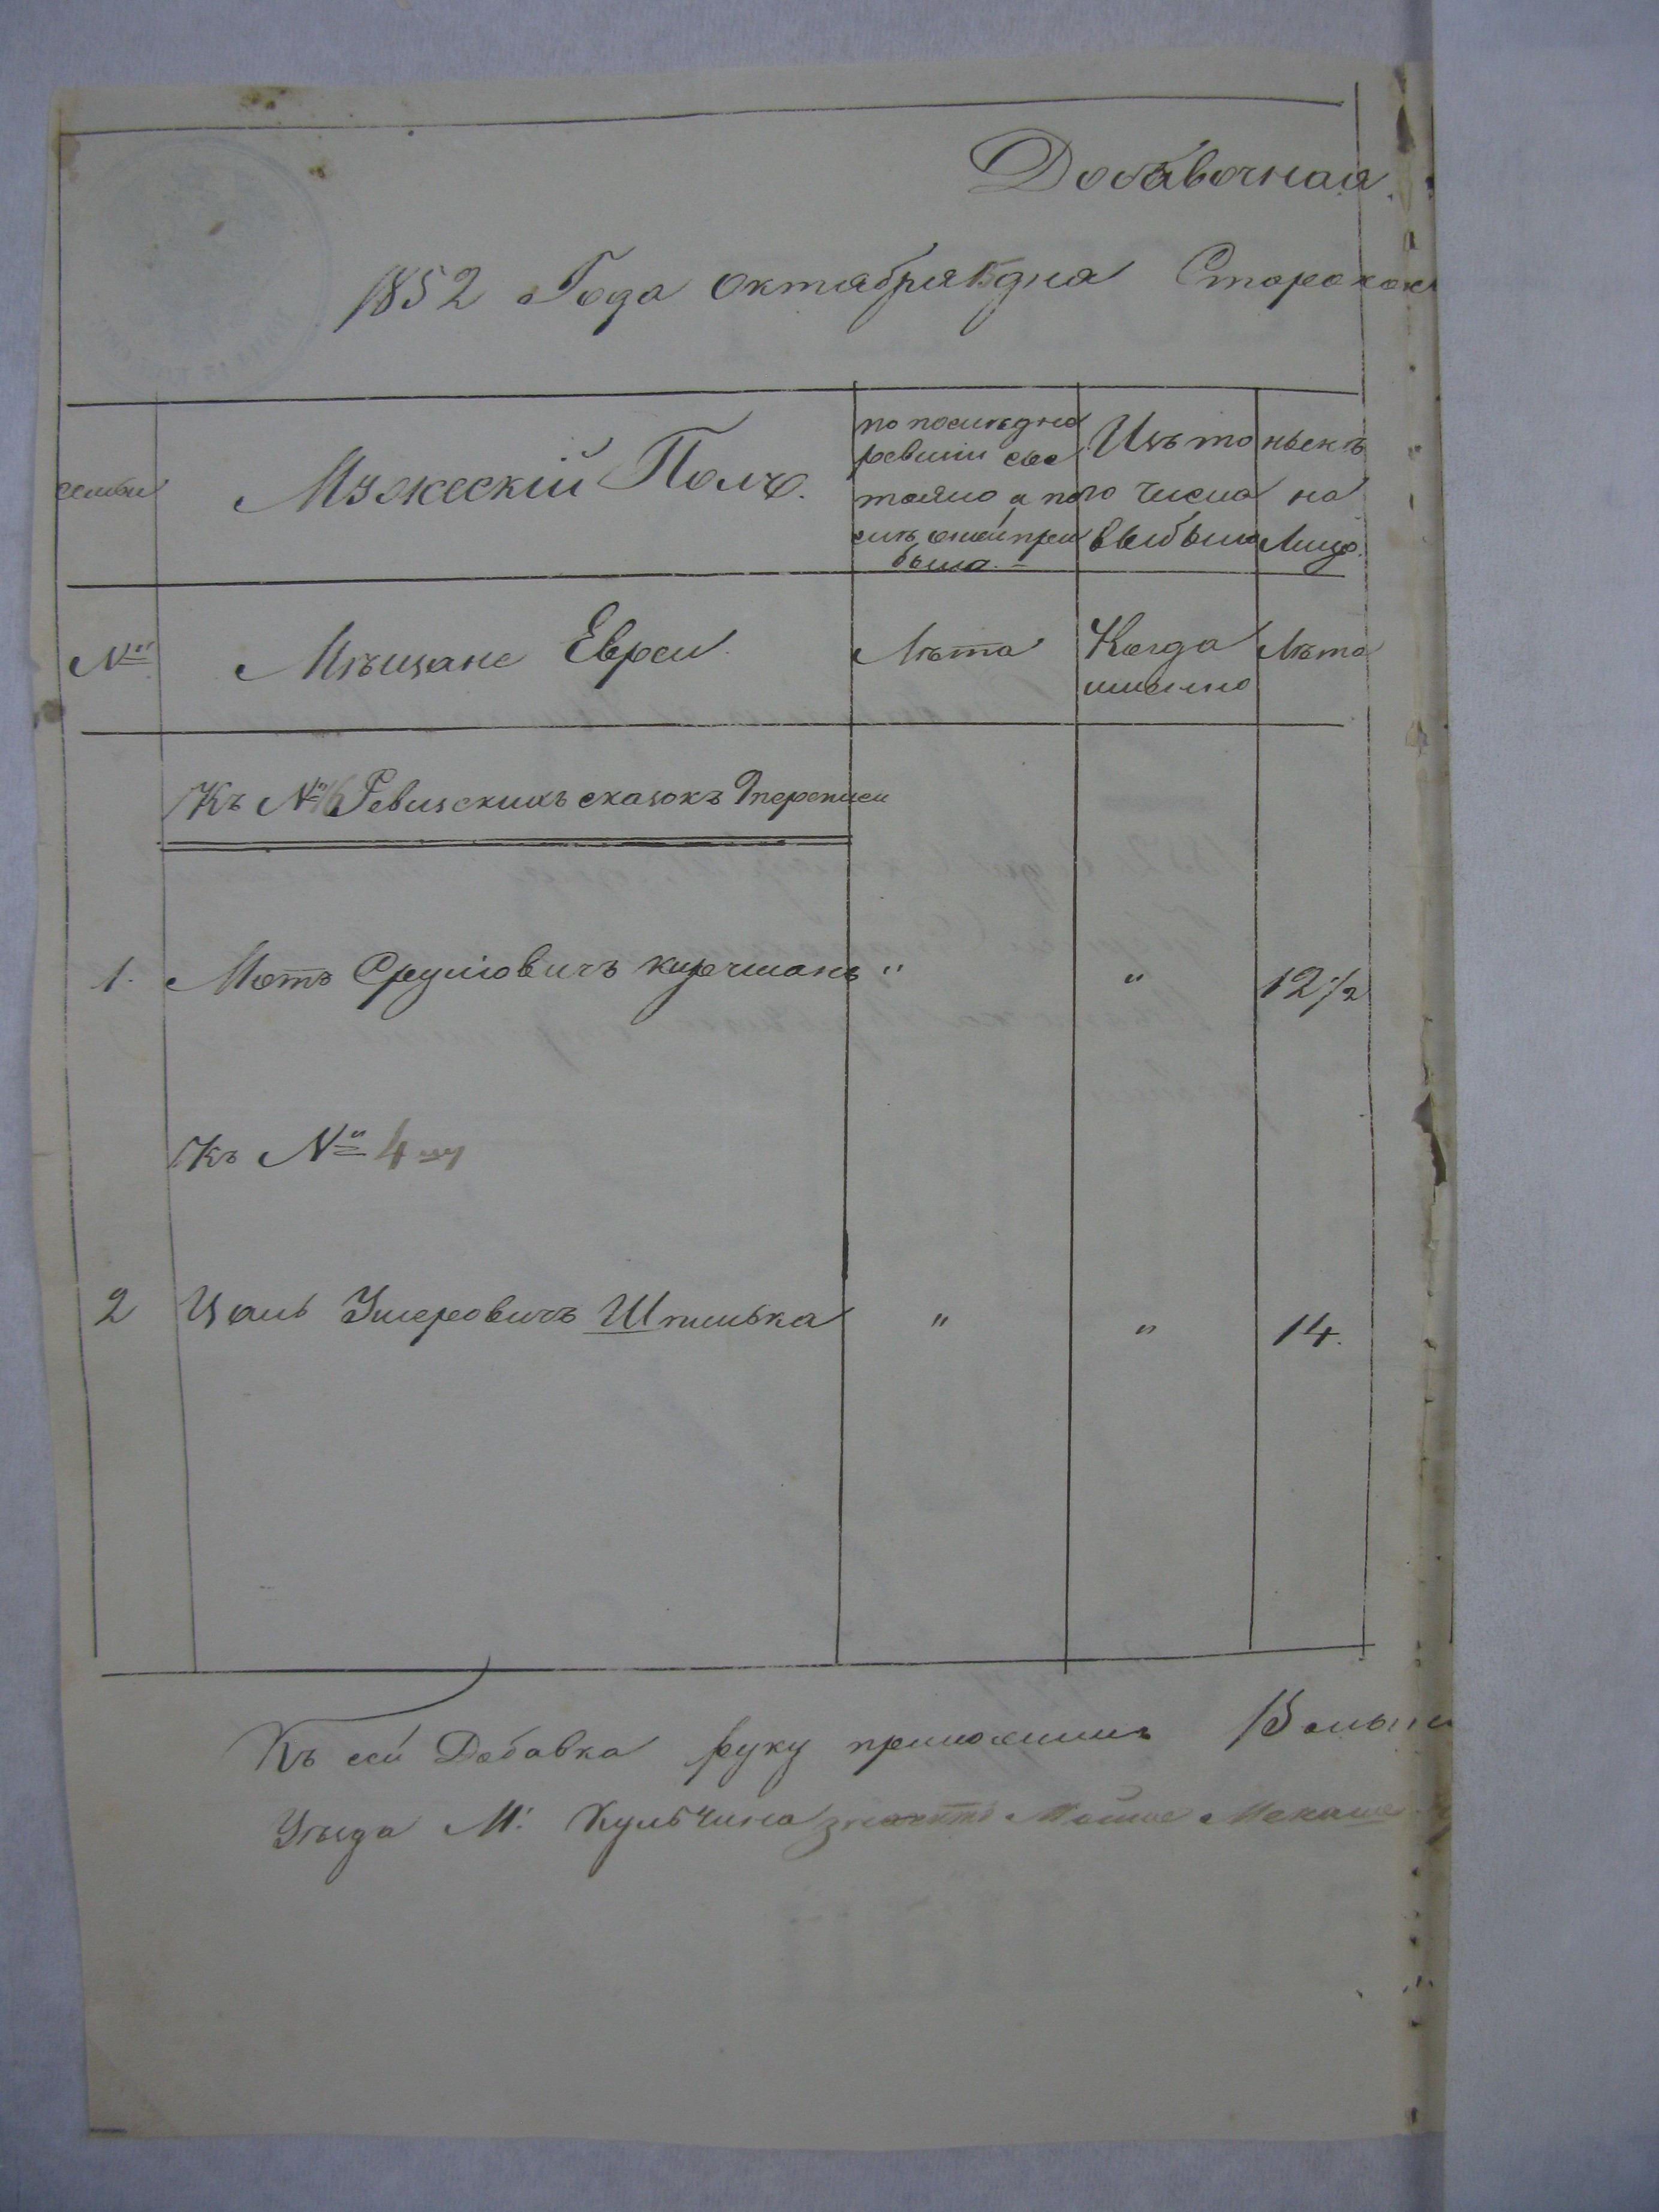 Добавочная
1852 Года октября дня Старокон
семьи
Мужескій Полъ.
по последне
ревизіи сос
тояло а по
слѣ оной при
было.
Изъ то
го числа
выбыло
ныне
на
Лицо.
№
Мѣщане Евреи
Лѣта
Когда
именно
Лѣта
Къ № Ревизскихъ сказокъ 9 переписи
1. Мотъ Сруліовичъ " " 12 1/2
Къ № 4му
2 Цаль Умеровичъ Шпилька " " 14.
Къ сей Добавка руку приложилъ Волын
Уѣзда М: Кульчина Мошко